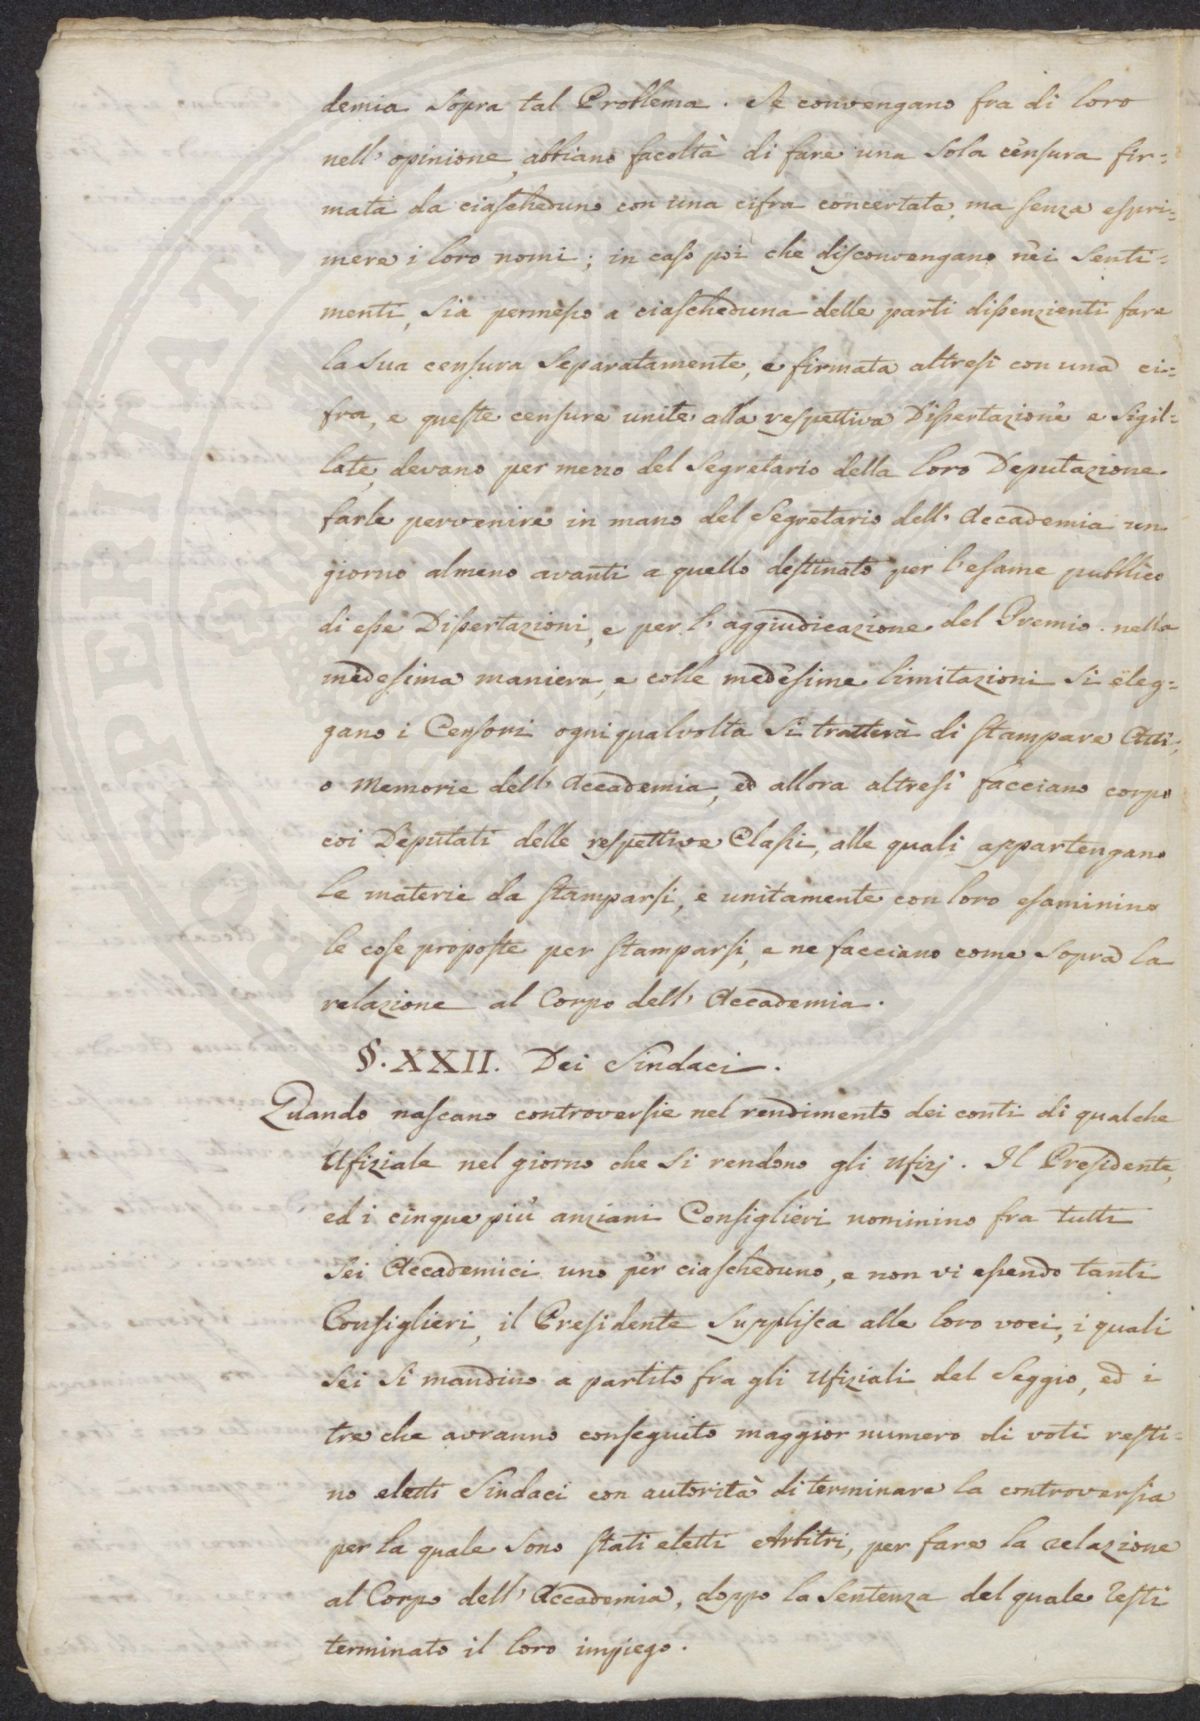 demia sopra tal Problema. Se convengano fra di loro
nell' opinione, abbiano facoltà di fare una sola censura fir=
mata da ciascheduno con una cifra concertata, ma senza espri=
mere i loro nomi; in caso poi che disconvengano nei senti=
menti, sia permesso a ciascheduna delle parti dissenzienti fare
la sua censura separatamente, e firmata altresì con una ci=
fra, e queste censure unite alla respettiva Dissertazione e sigil=
late, devano per mezzo del Segretario della loro Deputazione
farle pervenire in mano del Segretario dell' Accademia un
giorno almeno avanti a quello destinato per l'esame pubblico
di esse Dissertazioni, e per l' aggiudicazione del Premio. nella
medesima maniera, e colle medesime limitazioni si eleg=
gano i Censori ogni qualvolta si tratterà di stampare Atti,
o Memorie dell' Accademia, ed allora altresì facciano corpo
coi Deputati delle respettive Classi, alle quali appartengano
le materie da stamparsi, e unitamente con loro esaminino
le cose proposte per stamparsi, e ne facciano come sopra la
relazione al Corpo dell' Accademia.
§. XXII. Dei Sindaci.
Quando nascano controversie nel rendimento dei conti di qualche
Ufiziale nel giorno che si rendono gli Ufizj. Il Presidente,
ed i cinque più anziani Consiglieri nominino fra tutti
sei Accademici uno per ciascheduno, e non vi essendo tanti
Consiglieri, il Presidente supplisca alle loro voci, i quali
sei si mandino a partito fra gli Ufiziali del Seggio, ed i
tre che avranno conseguito maggior numero di voti resti=
no eletti Sindaci con autorità di terminare la controversia
per la quale sono stati eletti Arbitri, per fare la relazione
al Corpo dell' Accademia, doppo la Sentenza del quale resti
terminato il loro impiego.